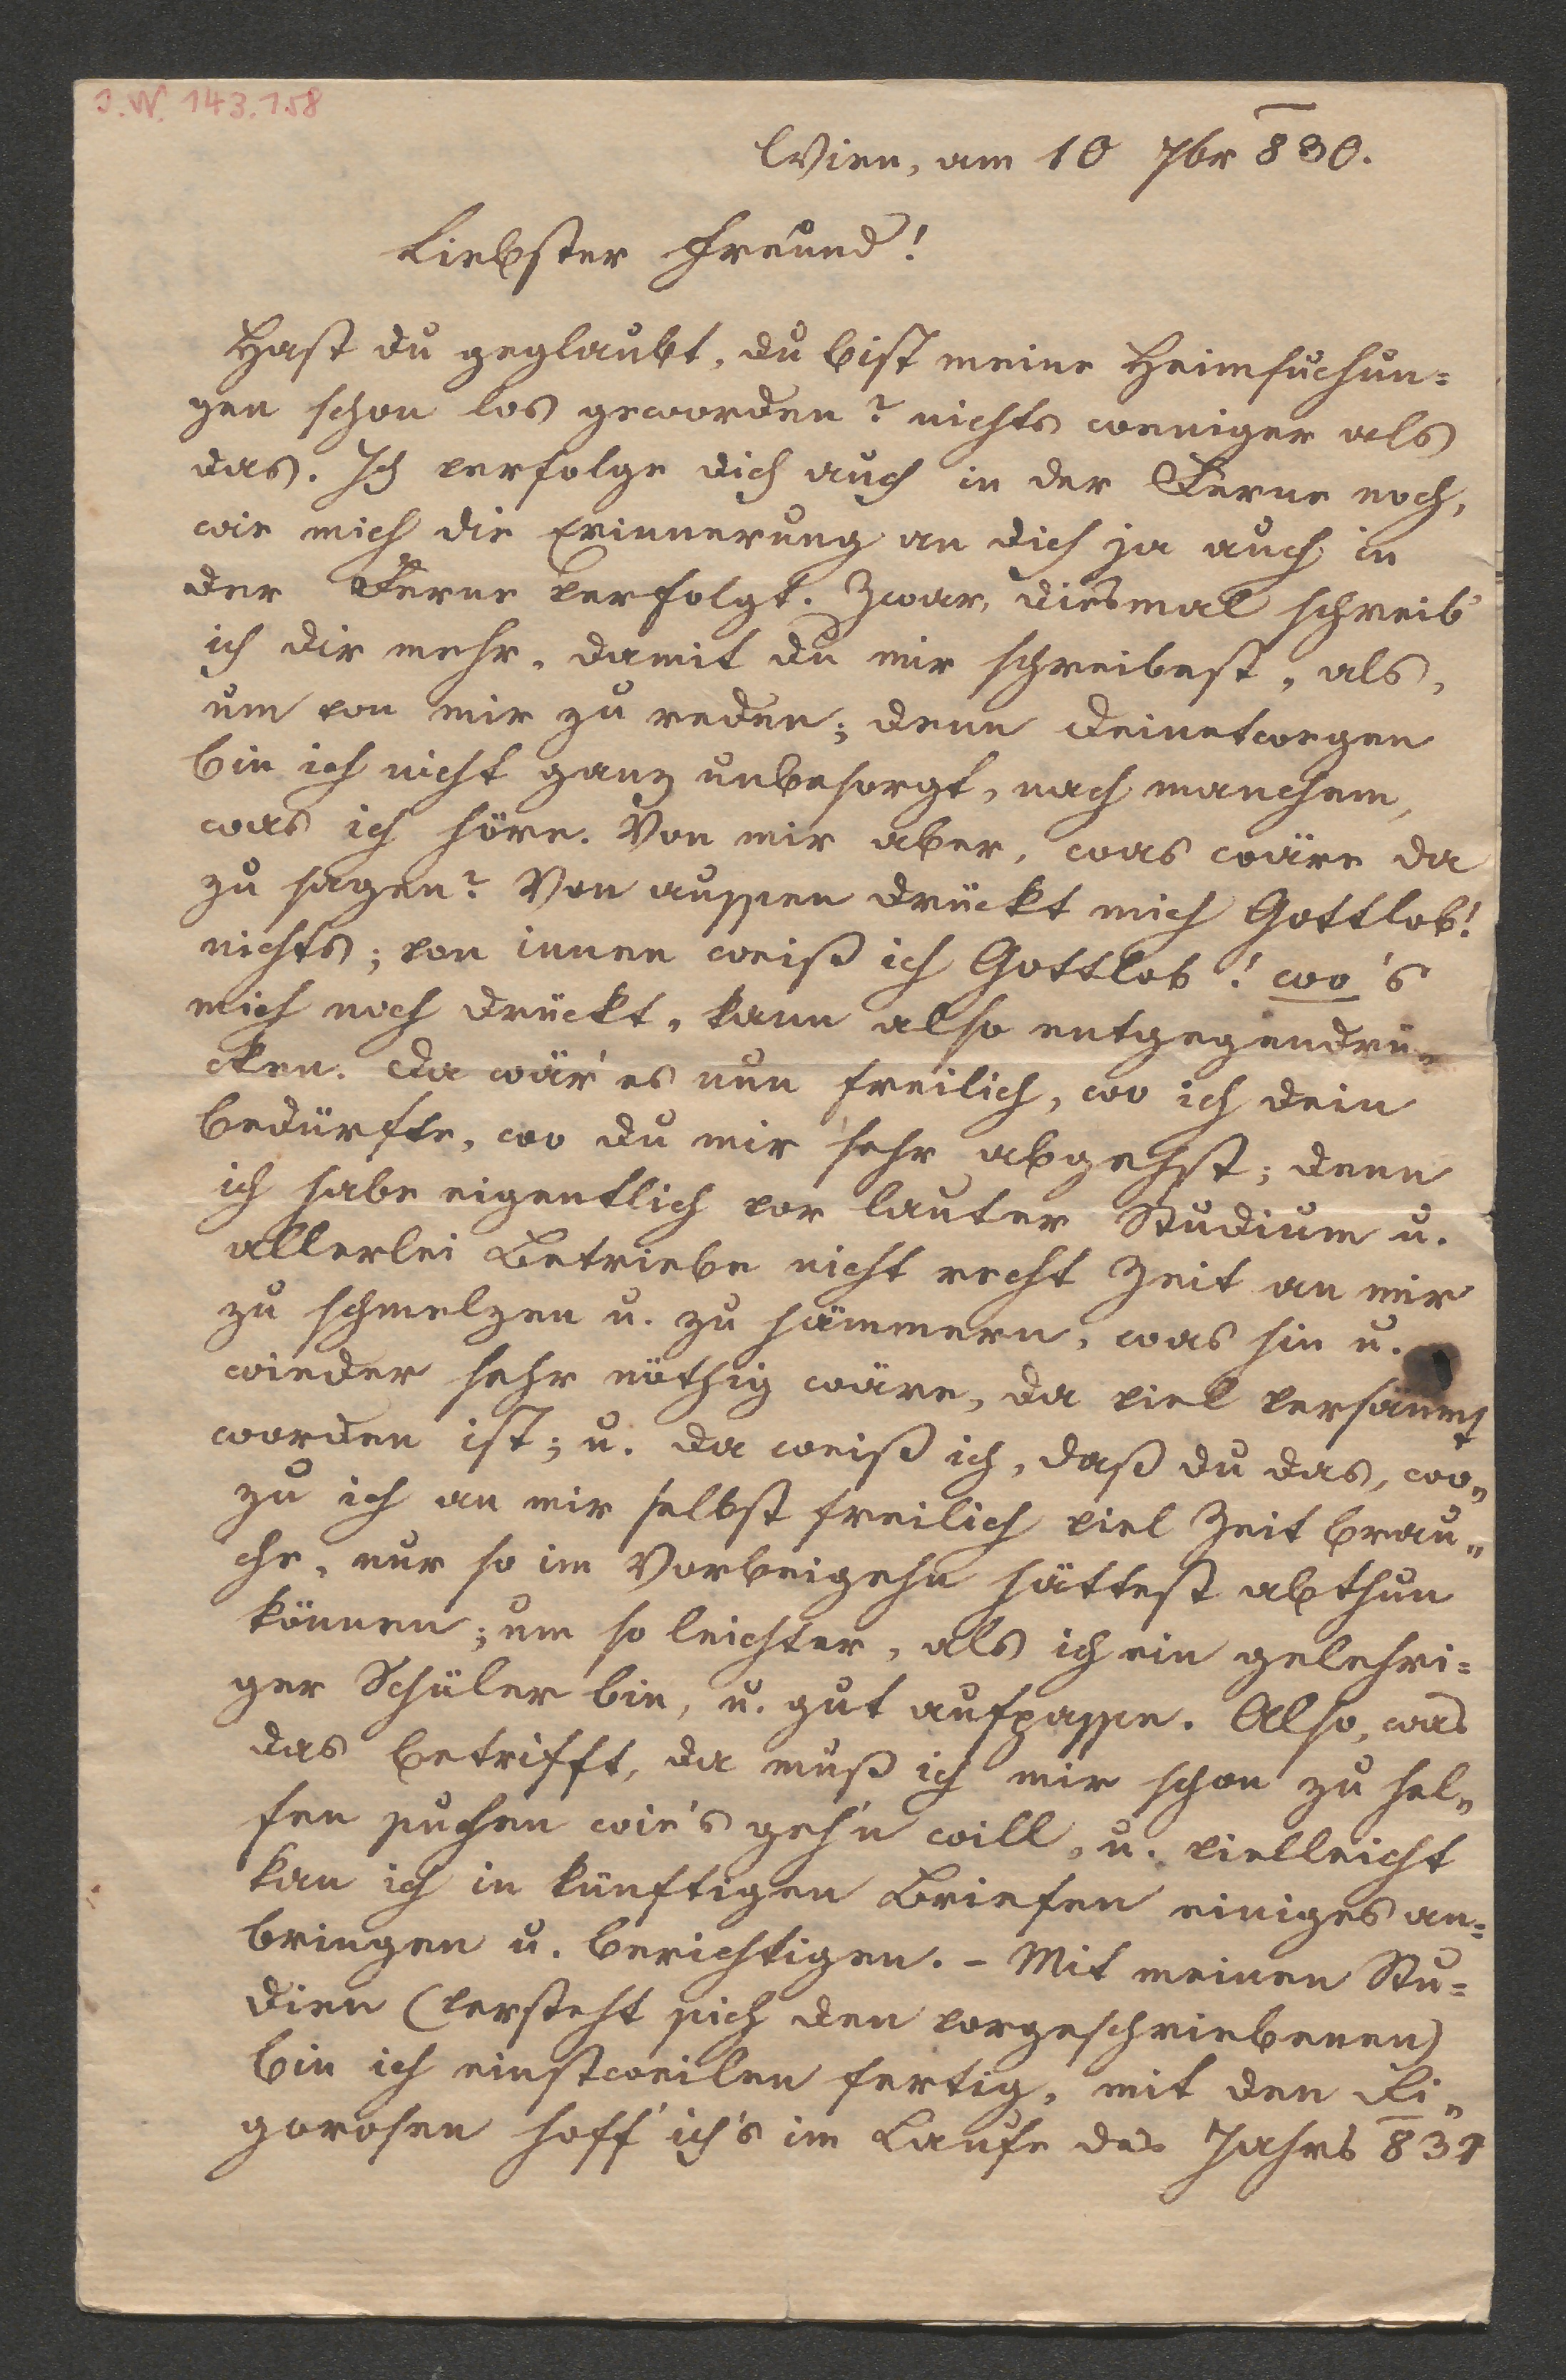 J. N. 143.158
Wien, am 10 7br 830.
Liebster Freund!
Hast du geglaubt, du bist meine Heimsuchun=
gen schon los geworden? nichts weniger als
das. Ich verfolge dich auch in der Ferne noch,
wie mich die Erinnerung an dich ja auch in
der Ferne verfolgt. Zwar, diesmal schreib'
ich dir mehr, damit du mir schreibest, als,
um von mir zu reden; denn deinetwegen
bin ich nicht ganz unbesorgt, nach manchem,
was ich höre. Von mir aber, was wäre da
zu sagen? Von aussen drückt mich Gottlob!
nichts; von innen weiß ich Gottlob! wo's
mich noch drückt, kann also entgegendrü=
cken. Da wär' es nun freilich, wo ich dein
bedürfte, wo du mir sehr abgehst; denn
ich habe eigentlich vor lauter Studium u.
allerlei Betriebe nicht recht Zeit an mir
zu schmelzen u. zu hämmern, was hin u.
wieder sehr nöthig wäre, da viel versäumt
worden ist; u. da weiß ich, daß du das, wo=
zu ich an mir selbst freilich viel Zeit brau=
che, nur so im Vorbeigehn hättest abthun
können; um so leichter, als ich ein gelehri=
ger Schüler bin, u. gut aufpasse. Also, was
das betrifft, da muß ich mir schon zu hel=
fen suchen wie's geh'n will, u. vielleicht
kan ich in künftigen Briefen einiges an=
bringen u. berichtigen. – Mit meinen Stu=
dien (versteht sich den vorgeschriebenen)
bin ich einstweilen fertig, mit den Ri=
gorosen hoff' ich's im Laufe des Jahrs 831